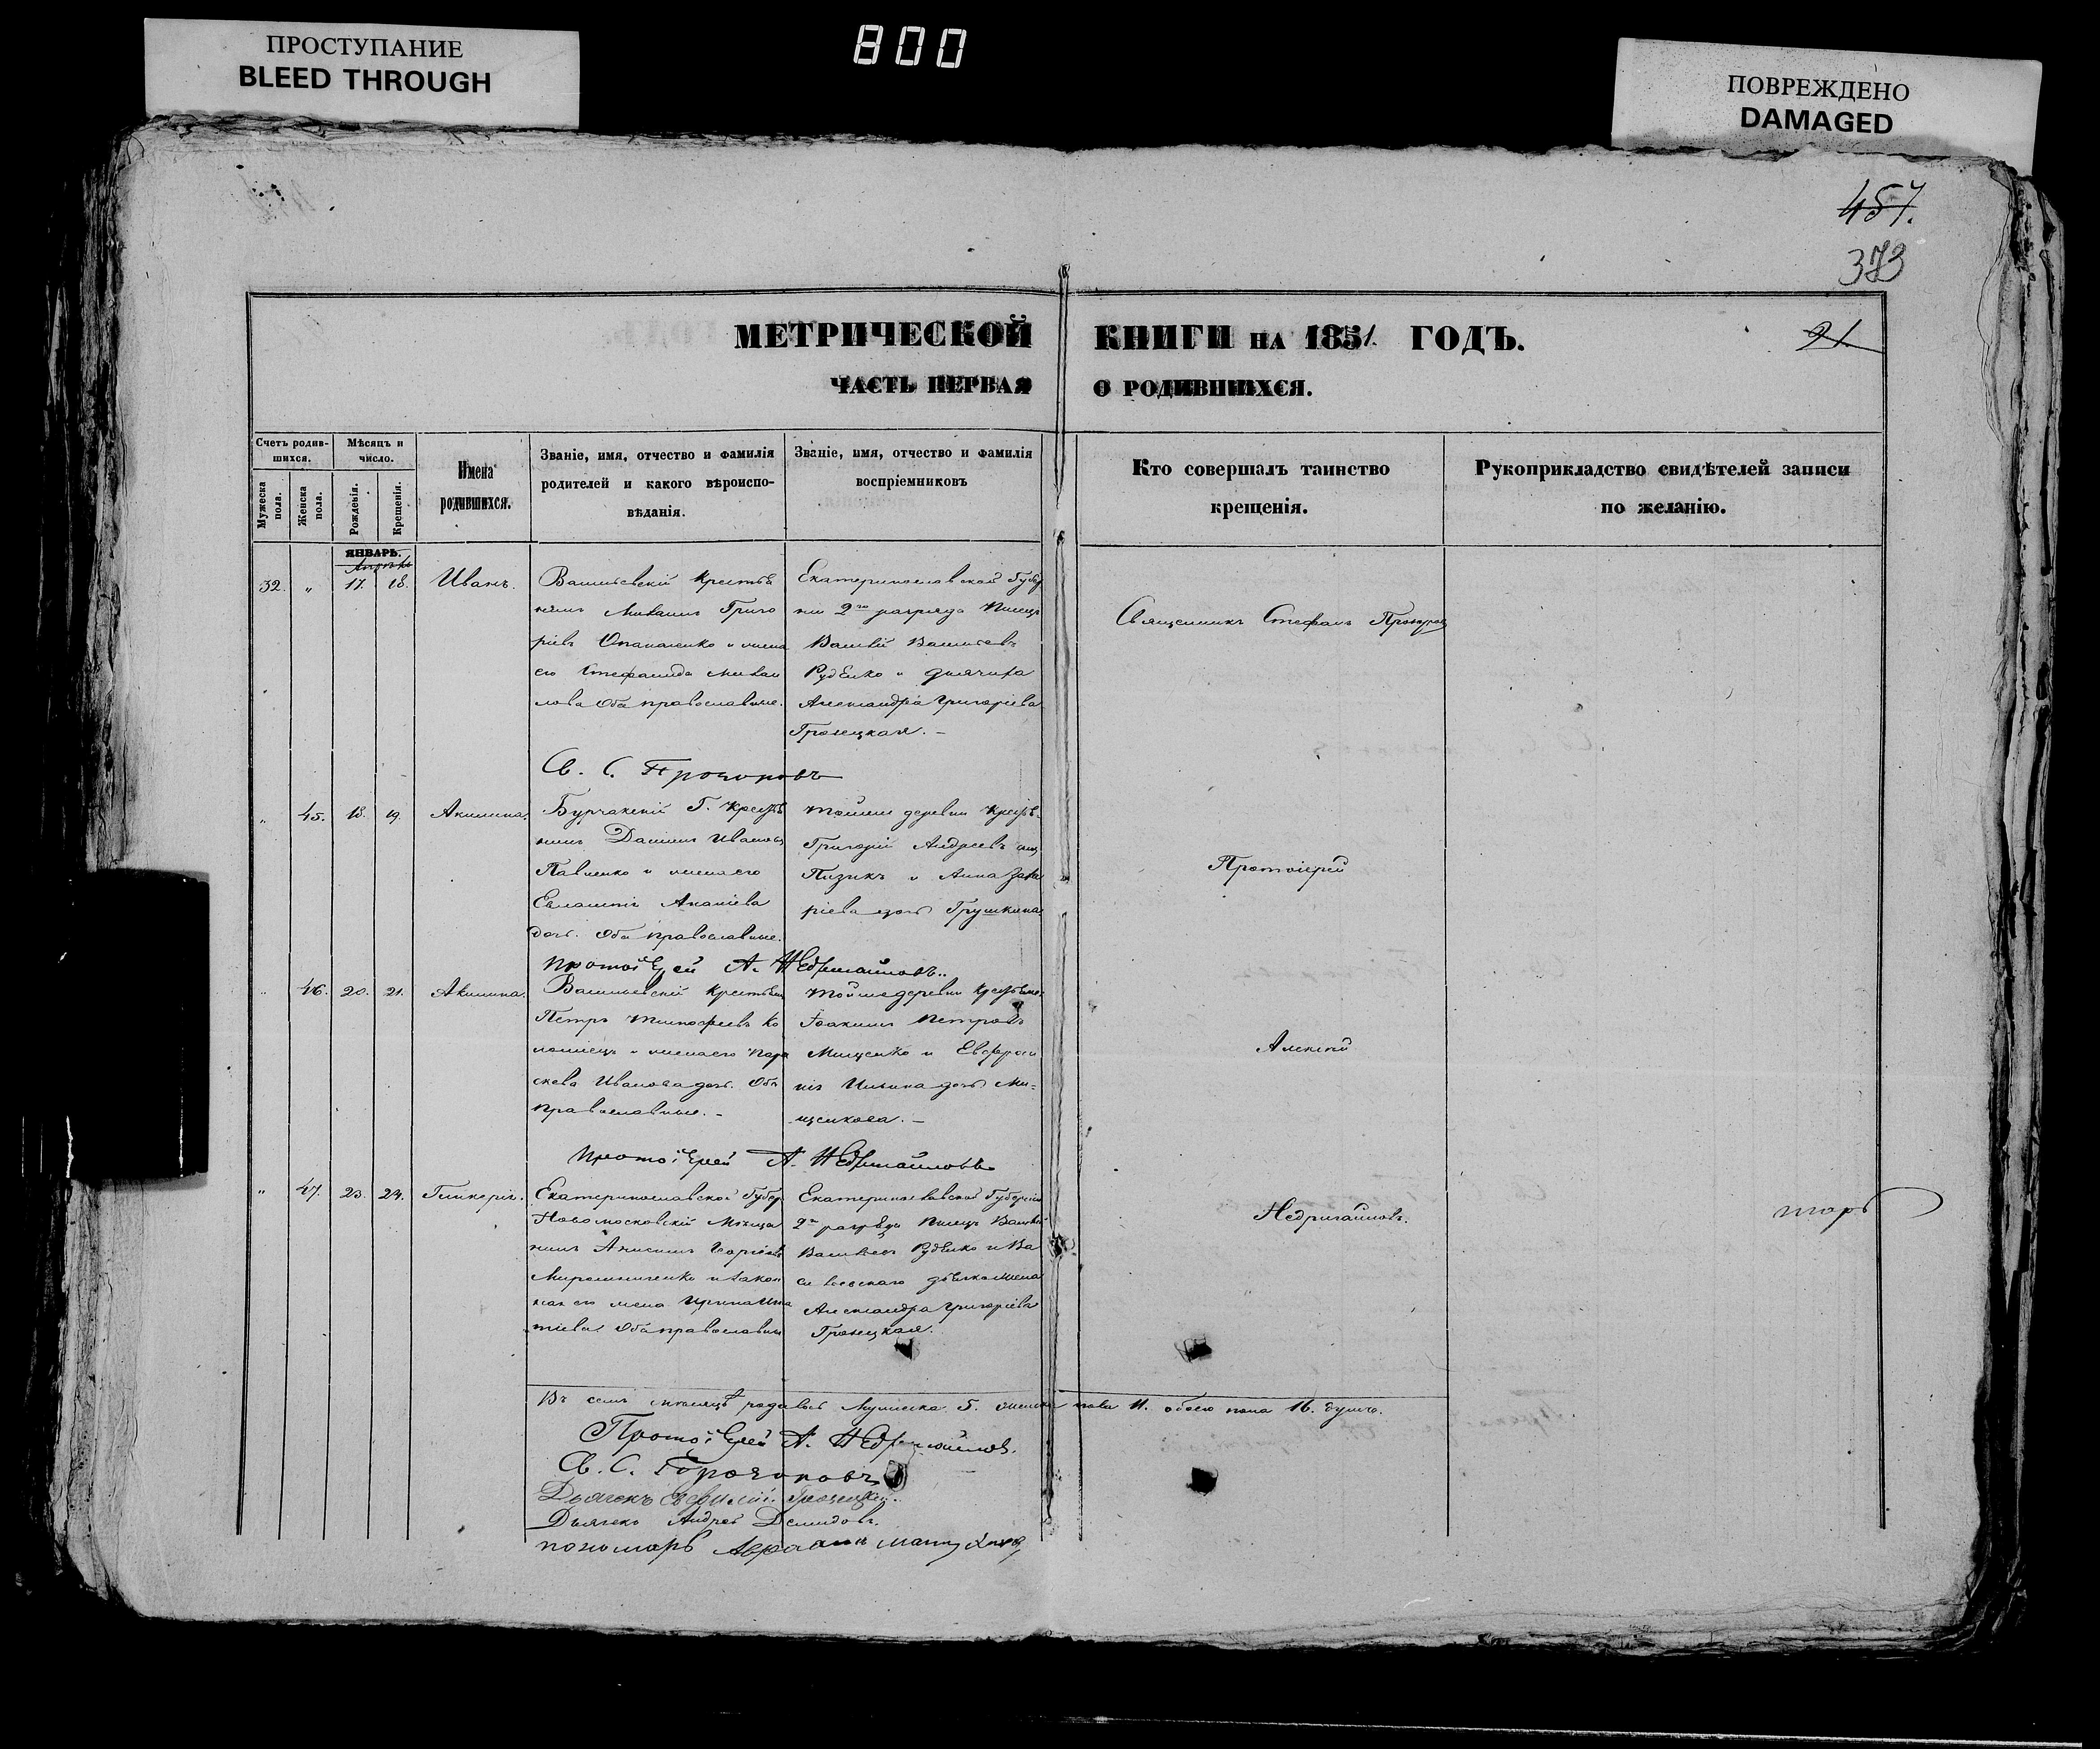 ПРОСТУПАНИЕ
BLEED THROUGH
800
ПОВРЕЖДЕНО
DAMAGED
457.
373
МЕТРИЧЕСКОЙ КНИГИ НА 1851. ГОДЪ.
21.
ЧАСТЬ ПЕРВАЯ О РОДИВШИХСЯ.
Счетъ родив-
шихся.
Мужеска пола.
Женска пола.
Мѣсяцъ и
число.
Рожденія.
Крещенія.
Имена
родившихся.
Званіе, имя, отчество и фамилія
родителей и какого вѣроиспо-
вѣданія.
Званіе, имя, отчество и фамилія
воспріемниковъ
Кто совершалъ таинство
крещенія.
Рукоприкладство свидѣтелей записи
по желанію.
ЯНВАРЬ.
32. " 17. 18. Иванъ.
Васильевскій Крестья
нинъ Михаилъ Григо
ріевъ Опанасенко и жена
его Стефанида Михаи
лова Оба православные.
Екатеринославской Губер
ніи 2го разряда Писецъ
Василій Васильевъ
Руденко и дьячиха
Александра Григоріева
Грозецкая. –
Священникъ Стефанъ
С. С.
" 45. 18. 19. Акилина.
Бурчакскій Г. Крестья
нинъ Даніилъ Ивановъ
Павленко и жена его
Евлампія Ананіева
дочь. Оба православные.
Тойже деревни Крестья.
Григорій Андреевъ сынъ
Пизикъ и Анна Заха
ріева дочь Грушкина
Протоіерей
Протоіерей А. Недригайловъ..
" 46. 20. 21. Акилина.
Васильевскій Крестьянинъ
Петръ Тимофеевъ Ко
ломіецъ и жена его Пара
скева Иванова дочь. Оба
православные. –
Тойже деревни Крестьяне:
Іоакимъ Петровъ
Мищенко и Евфроси
нія Ильина дочь Ми=
щенкова. –
Алексій
Протоіерей А. Недригайловъ
" 47. 23. 24. Гликерія.
Екатеринославской Губер.
Новомосковскій Мѣща
нинъ Анисимъ
Мирошниченко и закон
ная его жена Ирина Игна
тіева Оба православные
Екатеринославской Губерніи
2го разряда Писецъ Василій
Васильевъ Руденко и Ва
сильевскаго дьячка жена
Александра Григоріева
Грозецкая.
Недригайловъ.
марь
Въ семъ мѣсяцѣ родилось Мужеска 5. женска пола 11. обоего пола 16. душъ.
Протоіерей А. Недригайловъ.
С. С.
Дьячекъ Грозецкій.
Дьячекъ Андрей Демидовъ.
пономарь Авраамъ